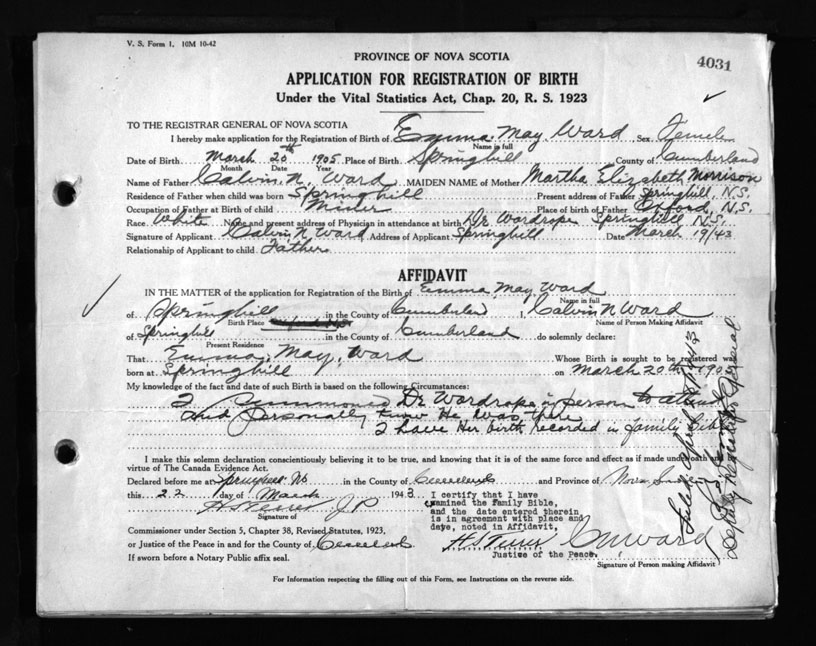 V. S. Form 1. 10M 10-42
4031
PROVINCE OF NOVA SCOTIA
APPLICATION FOR REGISTRATION OF BIRTH
Under the Vital Statistics Act, Chap. 20, R. S. 1923
TO THE REGISTRAR GENERAL OF NOVA SCOTIA
I hereby make application for the Registration of Birth of Emma May Ward Sex Female
Name in full
Date of Birth March 20th 1905 Place of Birth Springhill County of Cumberland
Month Date Year
Name of Father Calvin N. Ward MAIDEN NAME of Mother Martha Elizabeth Morrison
Residence of Father when child was born Springhill Present address of Father Springhill, N.S.
Occupation of Father at Birth of child Miner Place of birth of Father Oxford, N.S.
Race White Name and present address of Physician in attendance at birth Dr Wardrope Springhill N.S.
Signature of Applicant Calvin N Ward Address of Applicant Springhill Date March 19/43
Relationship of Applicant to child Father
AFFIDAVIT
IN THE MATTER of the application for Registration of the Birth of Emma May Ward
Name in full
of Springhill in the County of Cumberland I, Calvin N Ward
Birth Place Name of Person Making Affidavit
of Springhill in the County of Cumberland do solemnly declare:
Present Residence
That Emma May Ward Whose Birth is sought to be registered was
born at Springhill on March 20th 1905
My knowledge of the fact and date of such Birth is based on the following Circumstances:
I Summoned Dr Wardrope in person to attend
and personally know He was there
I have Her birth recorded in family Bible
I make this solemn declaration conscientiously believing it to be true, and knowing that it is of the same force and effect as if made under oath and
virtue of The Canada Evidence Act.
Declared before me at Springhill NS in the County of Cumberland and Province of Nova Scotia
this 22 day of March 1943
J P
Signature of
I certify that I have
examined the family Bible,
and the date entered therein
is in agreement with place and
date, noted in Affidavit,
Commissioner under Section 5, Chapter 38, Revised Statutes, 1923,
or Justice of the Peace in and for the County of Cumberland
C N Ward
Justice of the Peace.
If sworn before a Notary Public affix seal.
Signature of Person making Affidavit
For Information respecting the filling out of this Form, see Instructions on the reverse side.
Deputy Registrar General